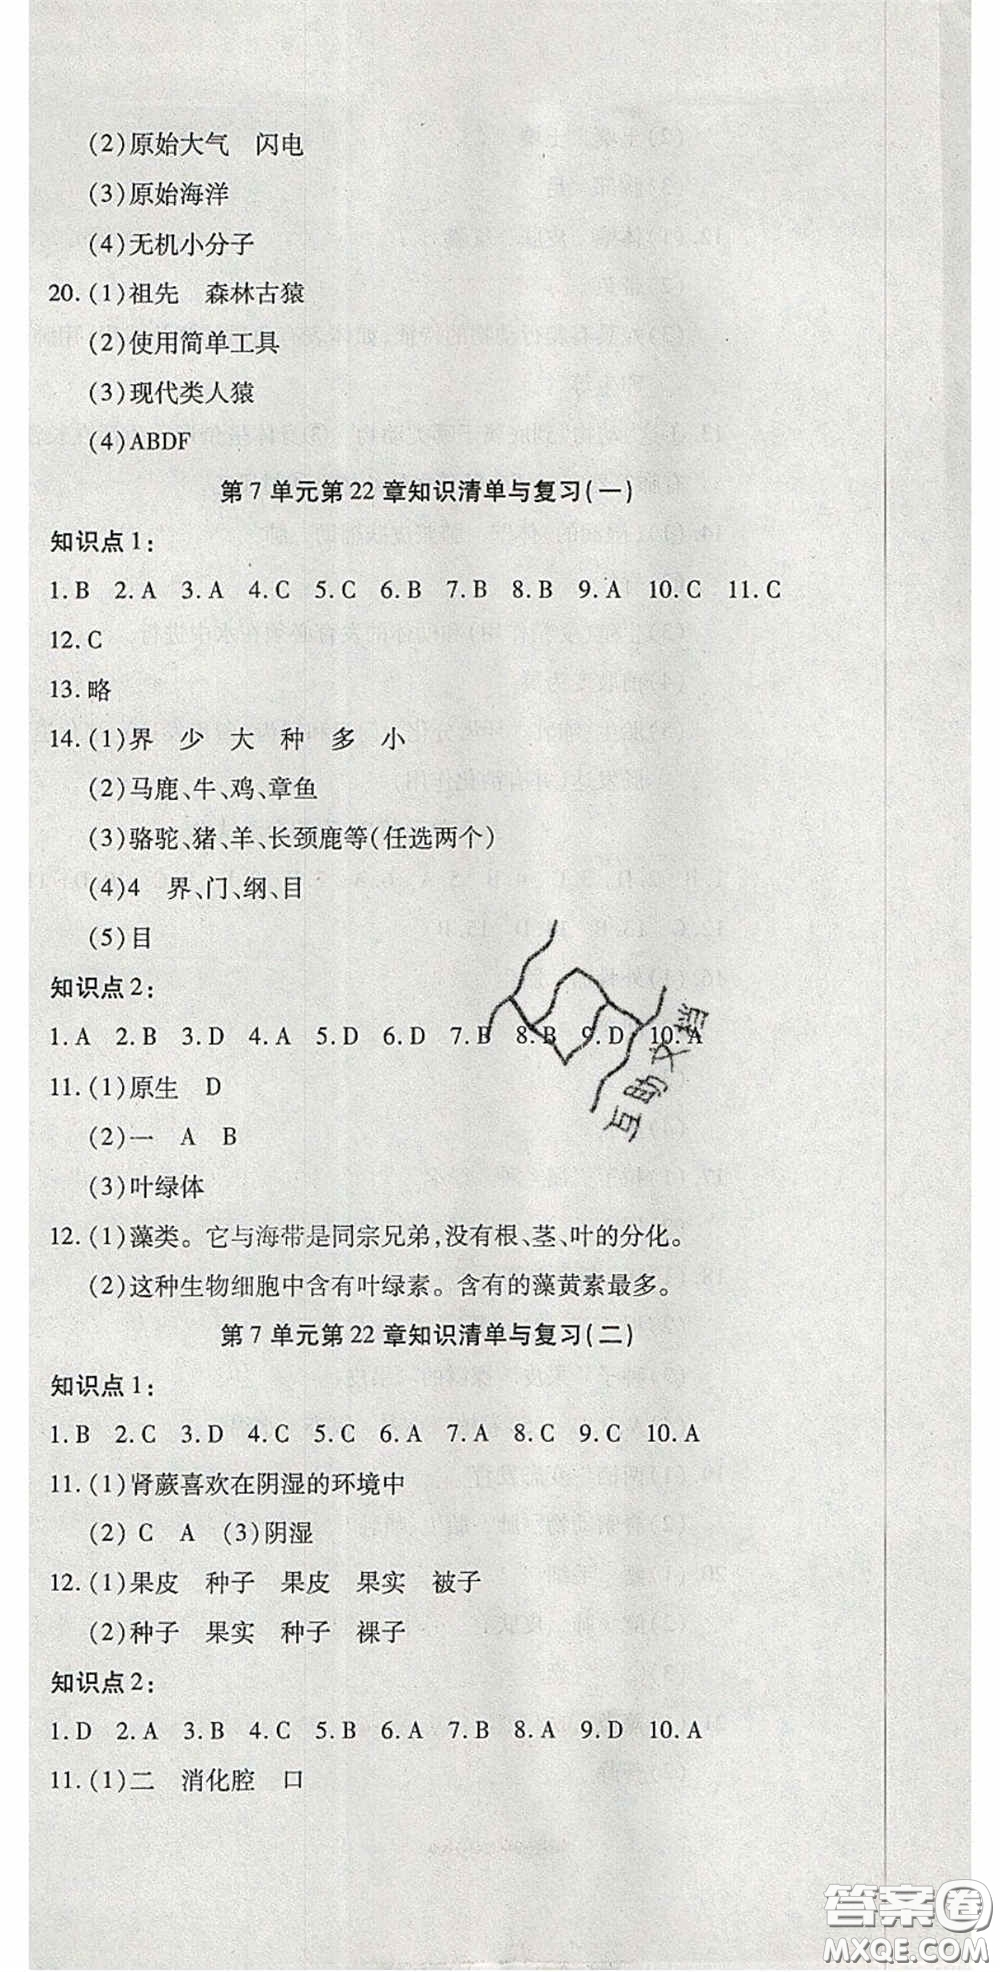 (2)原始大气 闪电
(3)原始海洋
(4)无机小分子
20.(1)祖先 森林古猿
(2)使用简单工具
(3)现代类人猿
(4)ABDF
第7单元第22章知识清单与复习(一)
知识点1:
1.B 2.A 3.A 4.C 5.C 6.B 7.B 8.B 9.A 10.C 11.C
12.C
13.略
14.(1)界 少 大 种 多 小
(2)马鹿、牛、鸡、章鱼
(3)骆驼、猪、羊、长颈鹿等(任选两个)
(4)4 界、门、纲、目
(5)目
知识点2:
1.A 2.B 3.D 4.A 5.D 6.D 7.B 8.B 9.D 10.A
11.(1)原生 D
(2)一 A B
(3)叶绿体
12.(1)藻类。它与海带是同宗兄弟,没有根、茎、叶的分化。
(2)这种生物细胞中含有叶绿素。含有的藻黄素最多。
第7单元第22章知识清单与复习(二)
知识点1:
1.B 2.C 3.D 4.C 5.C 6.A 7.A 8.C 9.C 10.A
11.(1)肾蕨喜欢在阴湿的环境中
(2) C A (3)阴湿
12.(1)果皮 种子 果皮 果实 被子
(2)种子 果实 种子 裸子
知识点2:
1.D 2.A 3.B 4.C 5.B 6.A 7.B 8.A 9.D 10.A
11.(1)二 消化腔 口
互助文档
答案圈
MXQE.COM